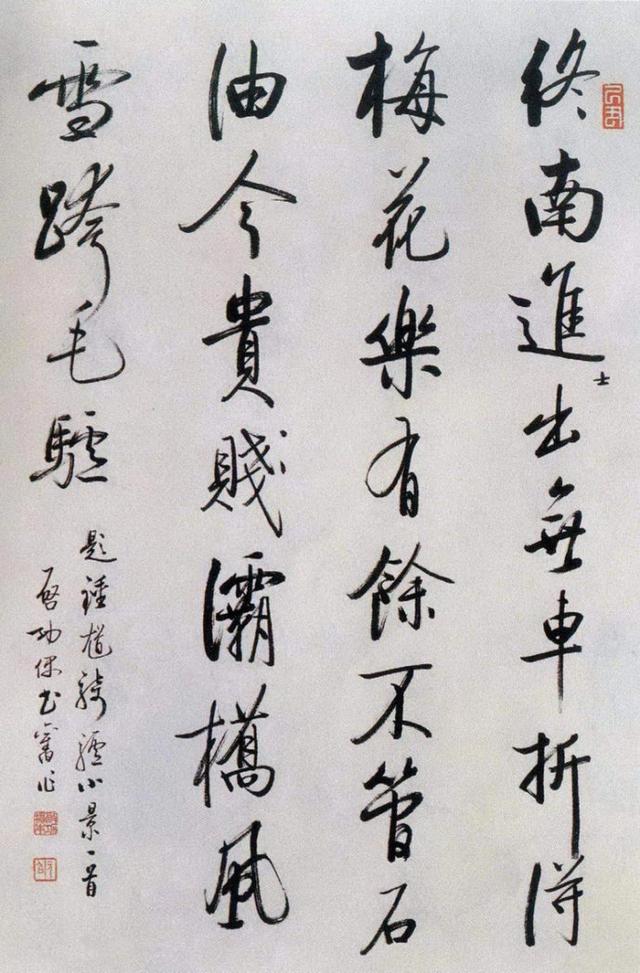 終南進士出無車折得
梅花樂有餘不管石
油今貴賤灞橋風
雪跨毛驢
題鍾馗騎驢小景一首
啓功書舊作